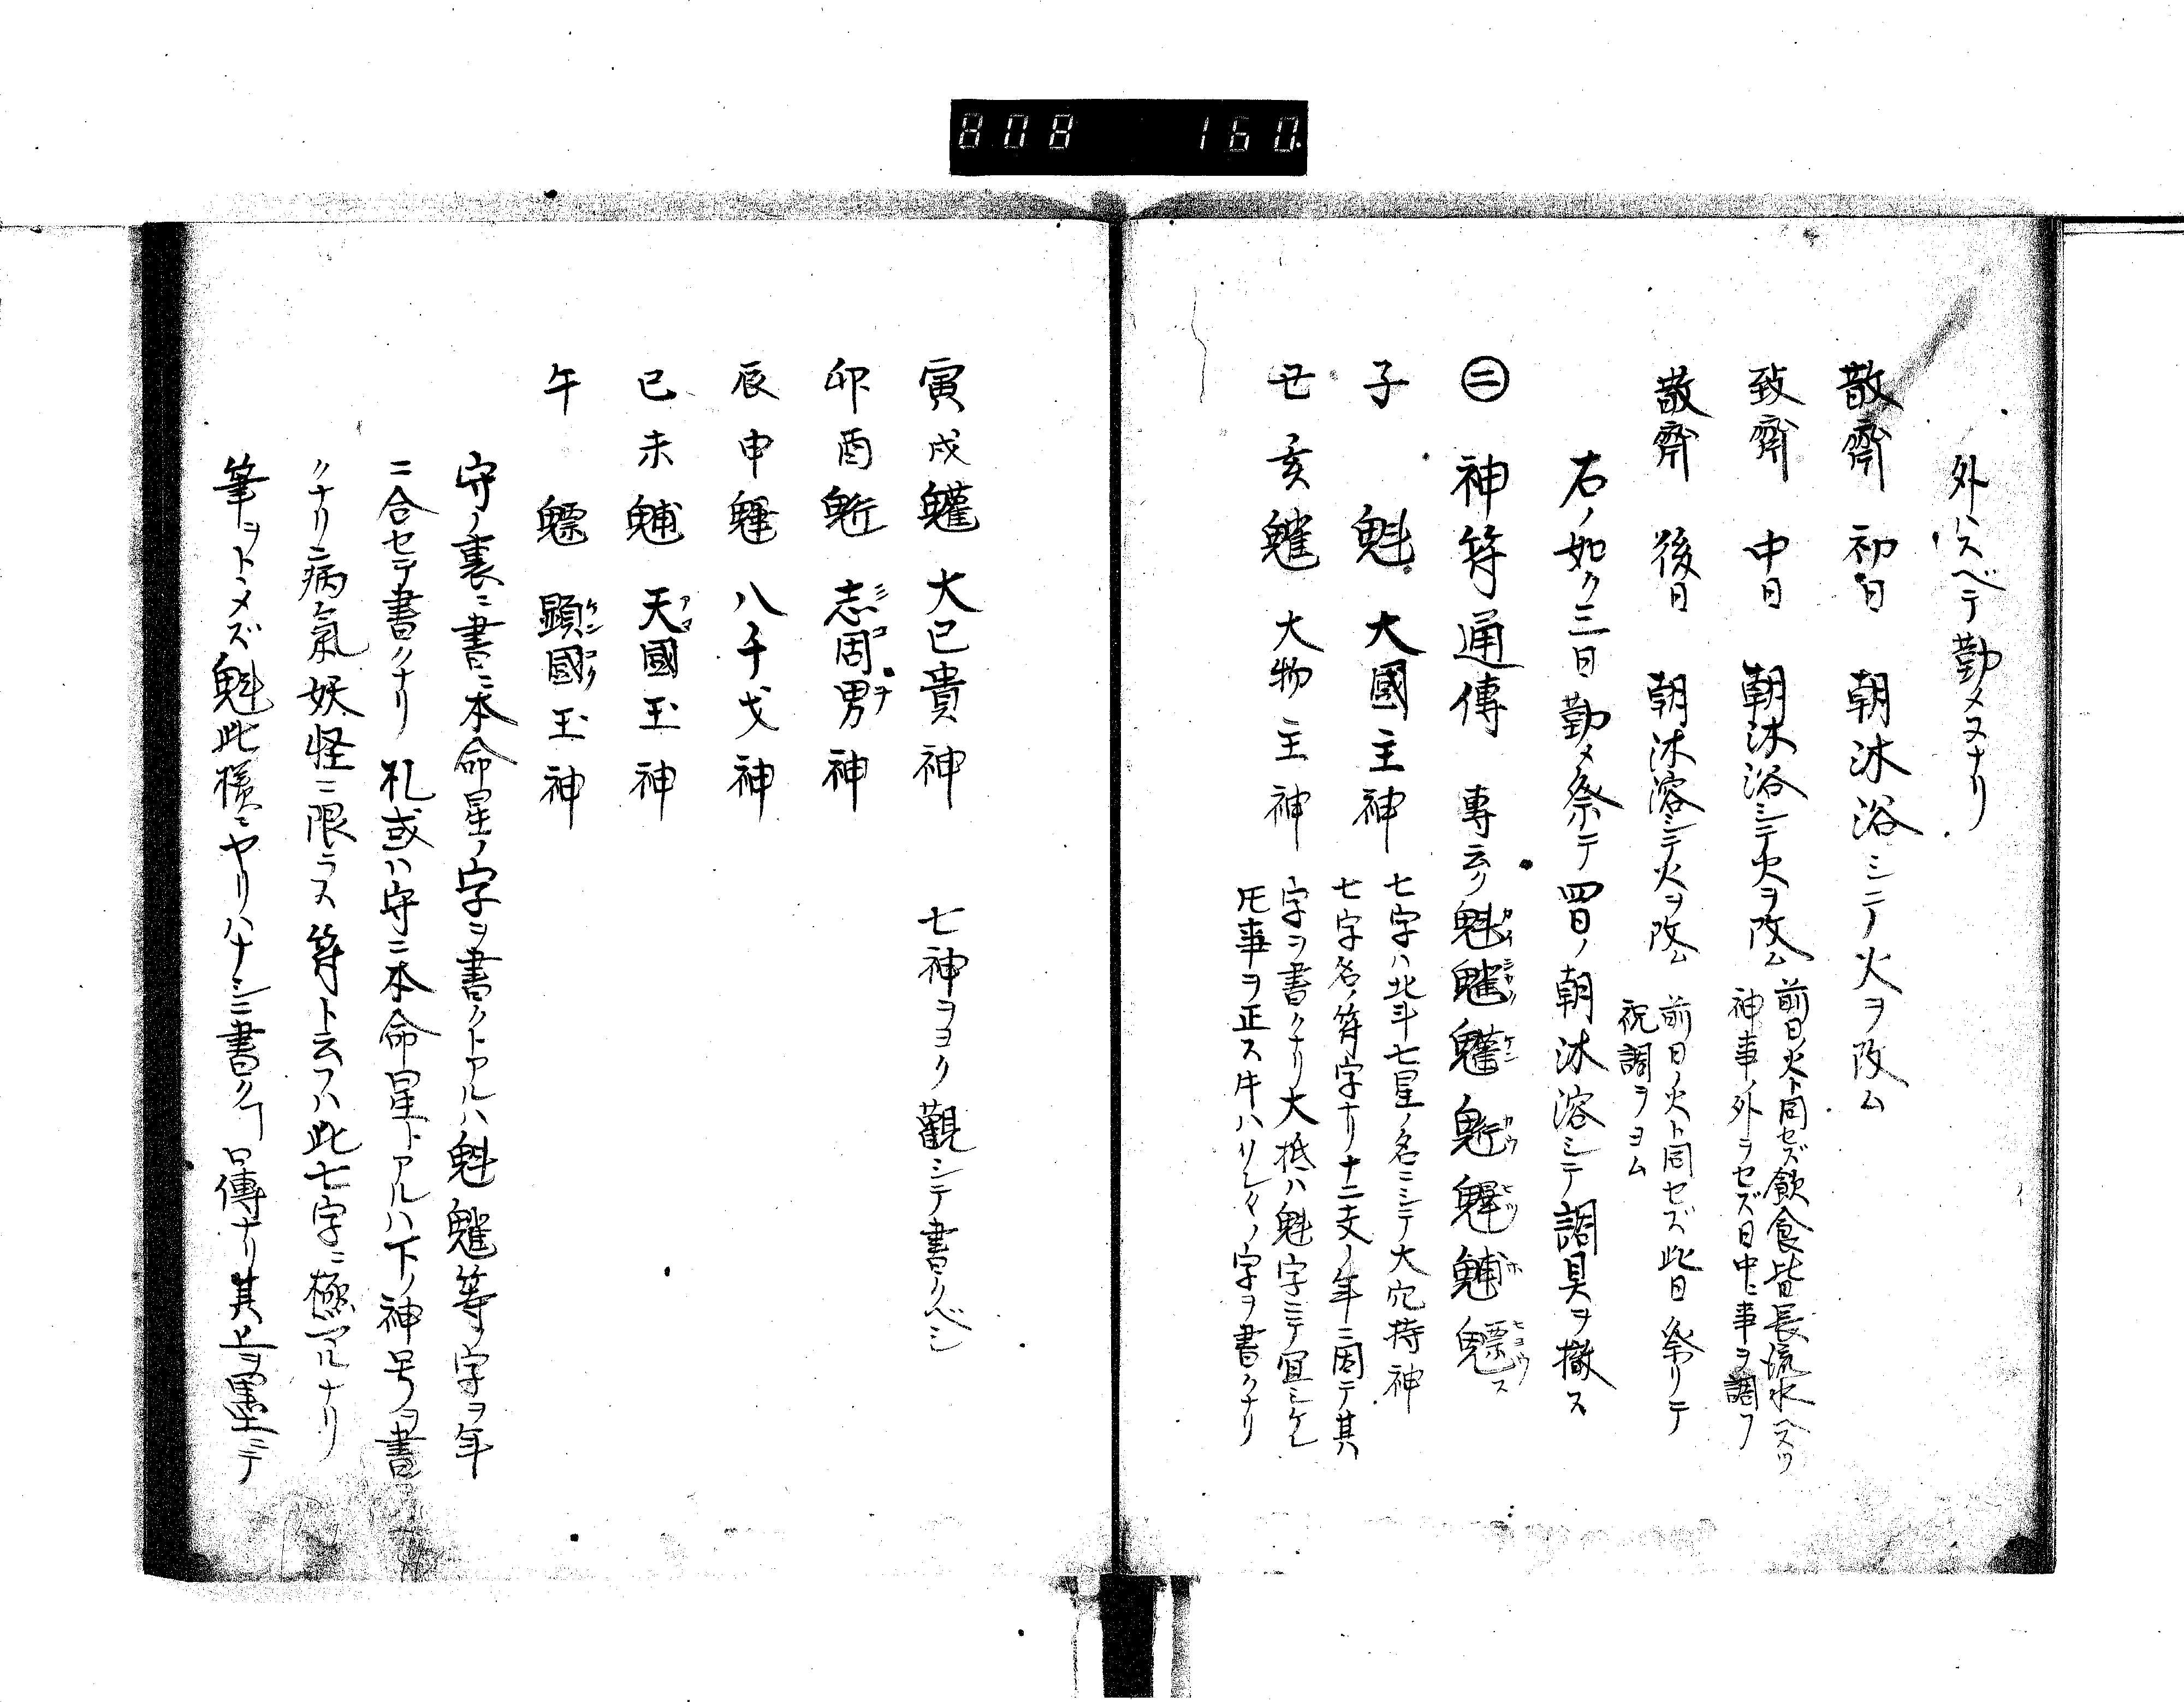 808 160
外ハスベテ勤メヌナリ
散齋 初日 朝沐浴シテ火ヲ改ム
致齋 中日 朝沐浴シテ火ヲ改ム 前日ノ火ト同セズ飲食皆長流水ヘスツ
神事外ラセズ日中ニ事ヲ調フ
散齋 後日 朝沐溶シテ火ヲ改ム 前日ノ火ト同セズ此日祭リテ
祝調ヲヨム
右ノ如ク三日勤メ祭テ四日ノ朝沐溶シテ調具ヲ撤ス
㊁ 神符通傳 專云ク魁䰢魒
子 魁 大國主神 七字ハ北斗七星ノ名ニシテ大穴持神
七字名ノ符字ナリ十二支ノ年ニ因テ其
丑亥 大物主神 字ヲ書クナリ大抵ハ魁字ニテ宜シケレ
𪜈事ヲ正ス牛ハリレ々ノ字ヲ書クナリ
寅戌 大已貴神 七神ヲヨク觀シテ書クベシ
卯酉 志固男神
辰申 八千戈神
巳未 天國玉神
午 魒 顕國玉神
守ノ裏ニ書ニ本命星ノ字ヲ書クトアルハ魁等ノ字ヲ年
ニ合セテ書クナリ 札或ハ守ニ本命星トアルハ下ノ神号ヲ書
クナリ病氣妖怪ニ限ラス符ト云フハ此七字ニ極アルナリ
筆ヲトメズ魁此樣ニヤリハナシニ書クヿ口傳ナリ其上ヲ墨ニテ